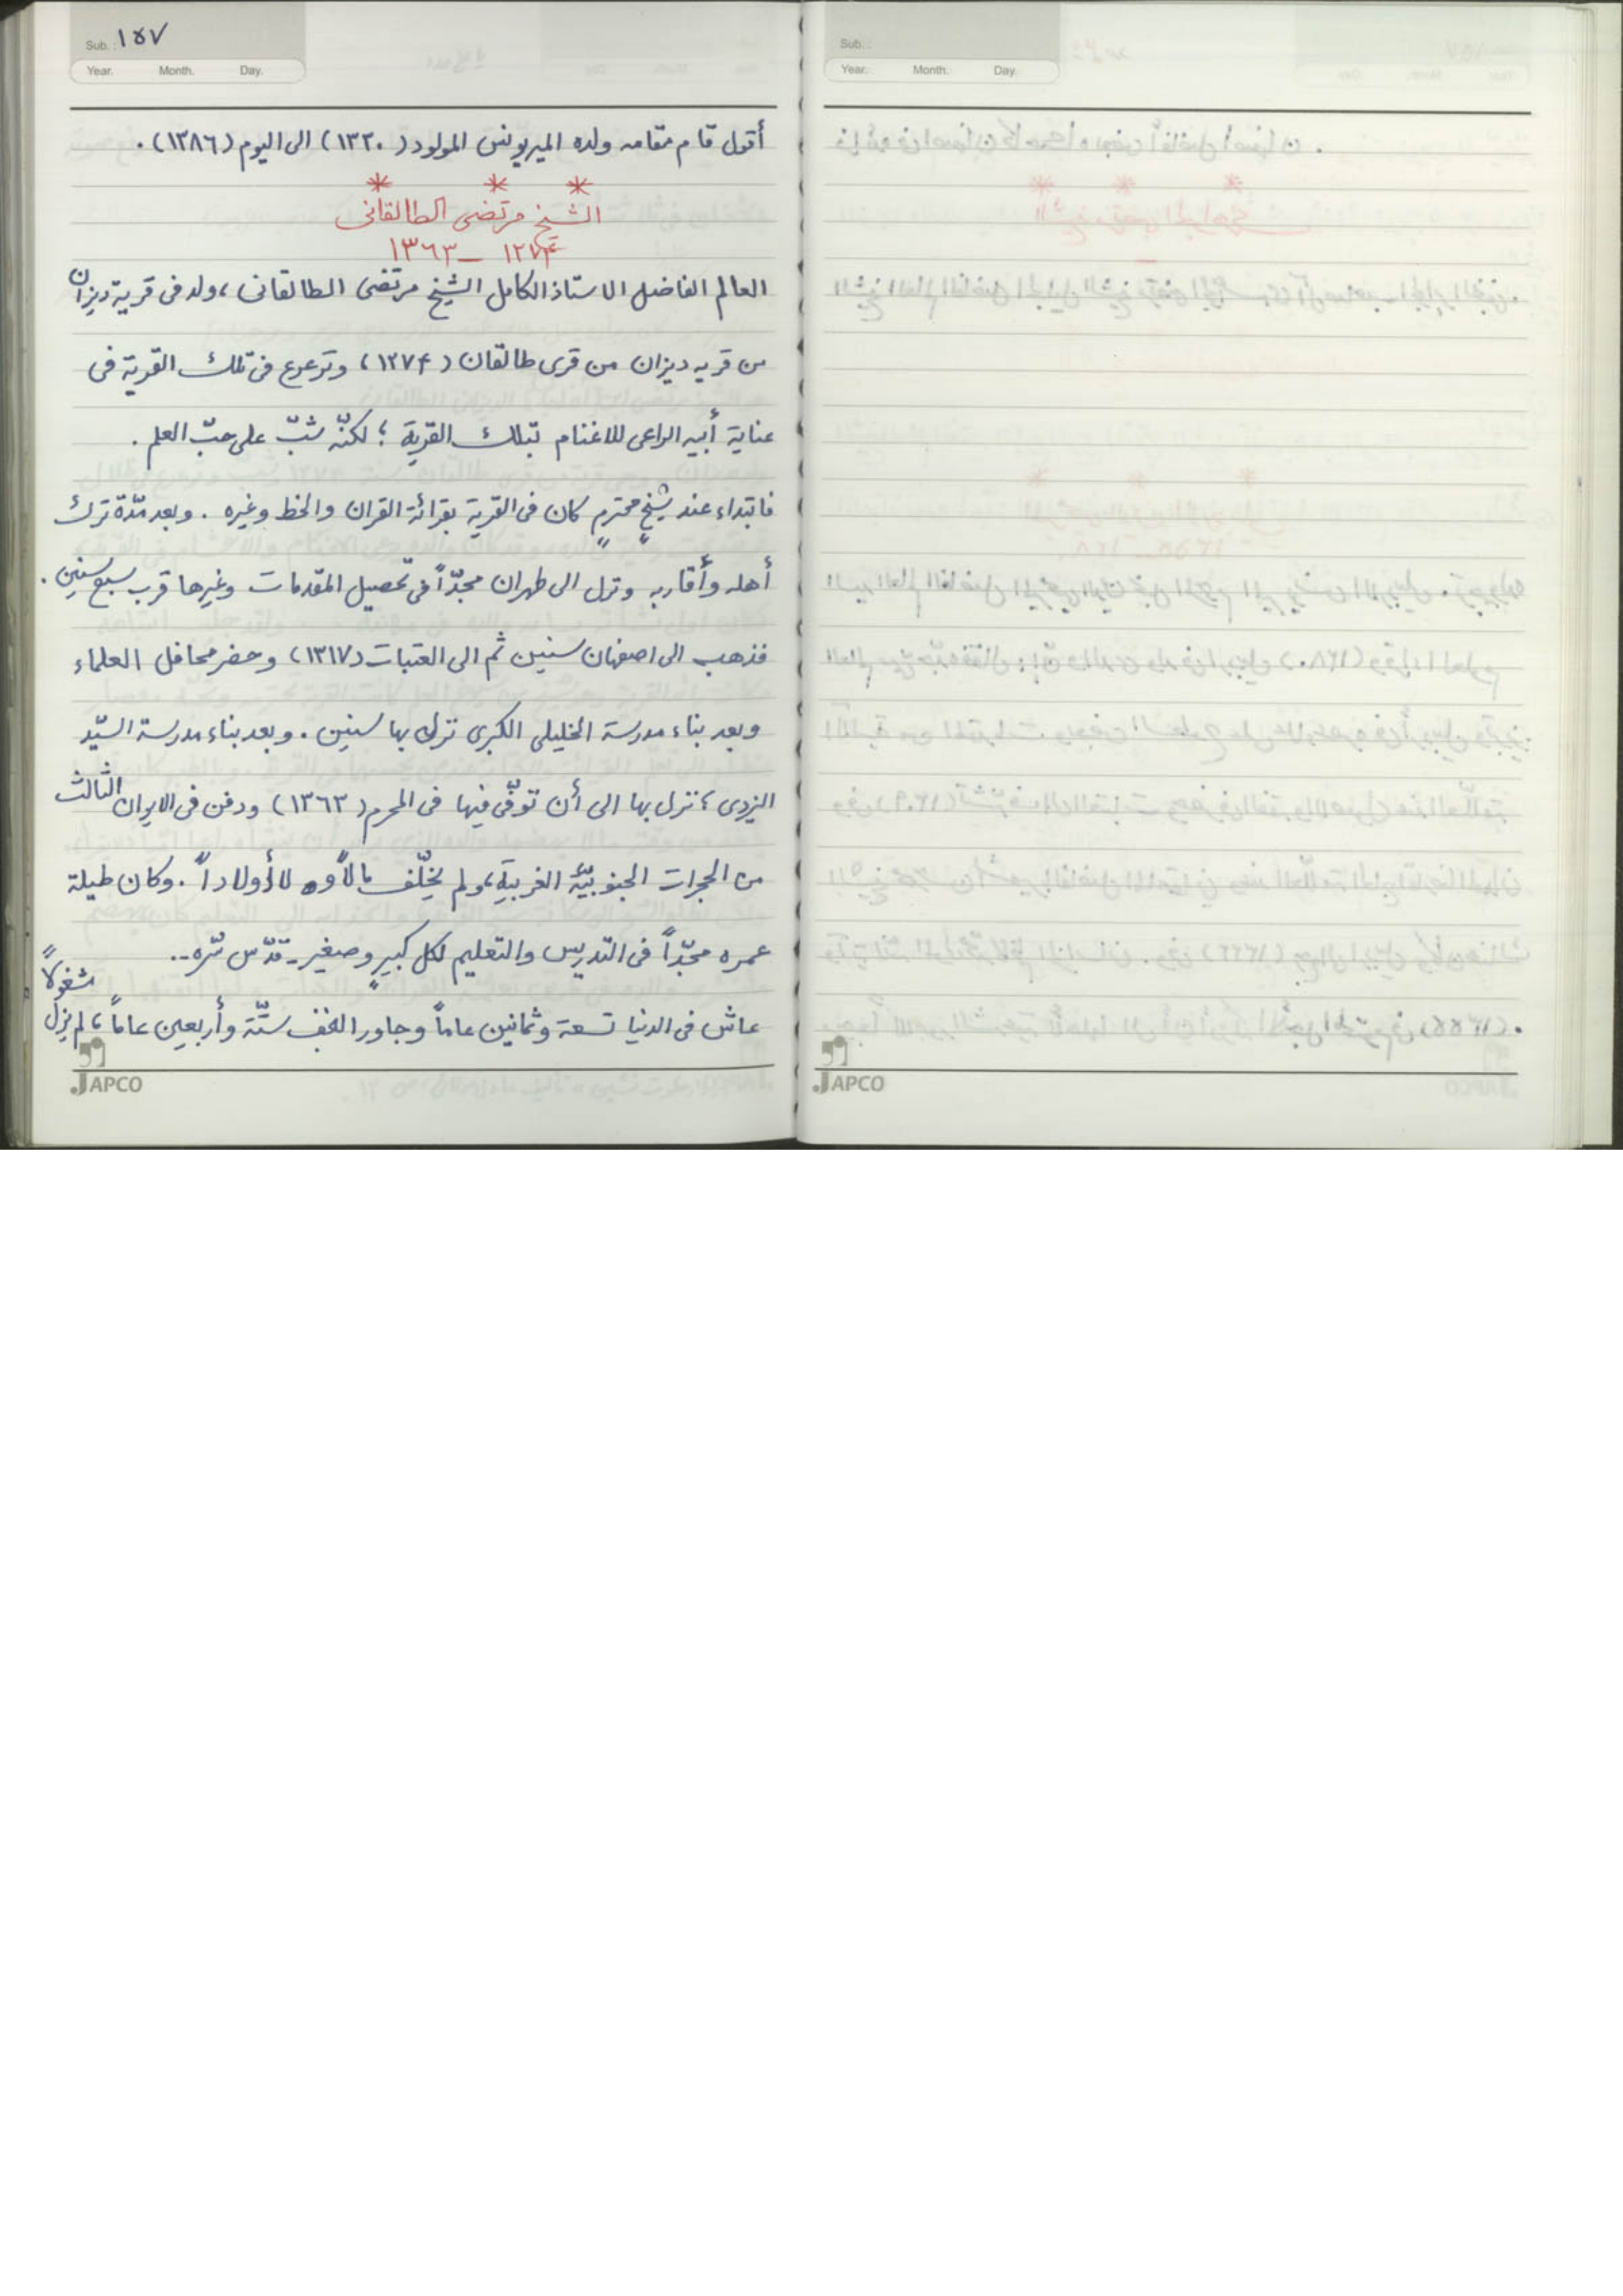 Sub.: ١٥٧
Year. Month. Day.
أقول قام مقامه ولده الميريونس المولود (١٣٢٠) الى اليوم (١٣٨٦).
* * *
الشيخ مرتضى الطالقانى
١٢٧۴ – ١٣٦٣
العالم الفاضل الاستاذ الكامل الشيخ مرتضى الطالقانى، ولد فى قرية ديزان
من قريه ديزان من قرى طالقان (١٢٧۴) وترعرع فى تلك القرية فى
عناية أبيه الراعى للاغنام بتلك القرية؛ لكنّه شبّ على حبّ العلم.
فابتداء عند شيخٍ محترمٍ كان فى القرية بقرائة القران والخط وغيره. وبعد مدّة ترك
أهله وأقاربه ونزل الى طهران مجدّاً فى تحصيل المقدمات وغيرها قرب سبع سنين.
فذهب الى اصفهان سنين ثم الى العتبات (١٣١٧) وحضر محافل العلماء
وبعد بناء مدرسة الخليلى الكبرى نزل بها سنين. وبعد بناء مدرسة السيّد
اليزدى، نزل بها الى أن توفّى فيها فى المحرم (١٣٦٣) ودفن فى الايوان الثالث
من الحجرات الجنوبيّة الغربية، ولم يخلّف مالاً و لا أولاداً. وكان طيلة
عمره مجدّاً فى التدريس والتعليم لكل كبيرٍ وصغير ـ قدّس سّره ـ.
عاش فى الدنيا تسعة وثمانين عاماً وجاور النجف ستّة وأربعين عاماً، لم يزل مشغولاً
JAPCO
Sub.:
Year. Month. Day.
JAPCO